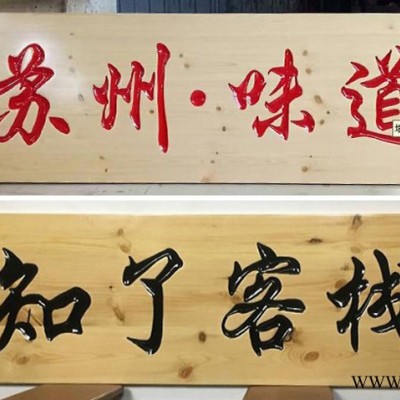 苏州·味道
知了客栈
www.